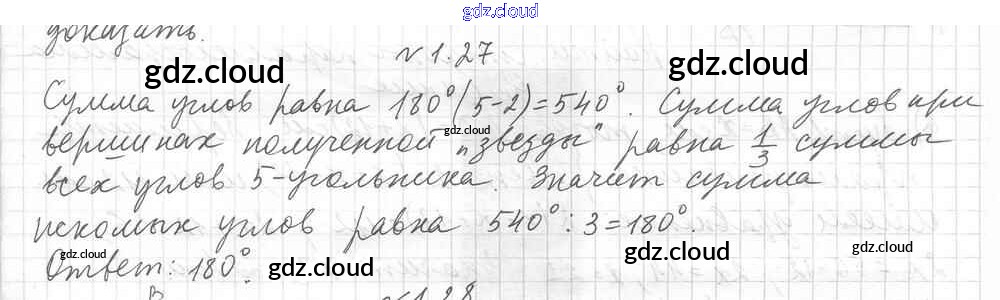 gdz.cloud
доказать.
№ 1.27
gdz.cloud
gdz.cloud
Сумма углов равна 180°(5-2)=540°. Сумма углов при
вершинах полученной „звезды" равна 1/3 суммы
gdz.cloud
всех углов 5-угольника. Значит сумма
искомых углов равна 540° : 3 = 180°.
Ответ: 180°.
gdz.cloud
gdz.cloud
gdz.cloud
№ 1.28